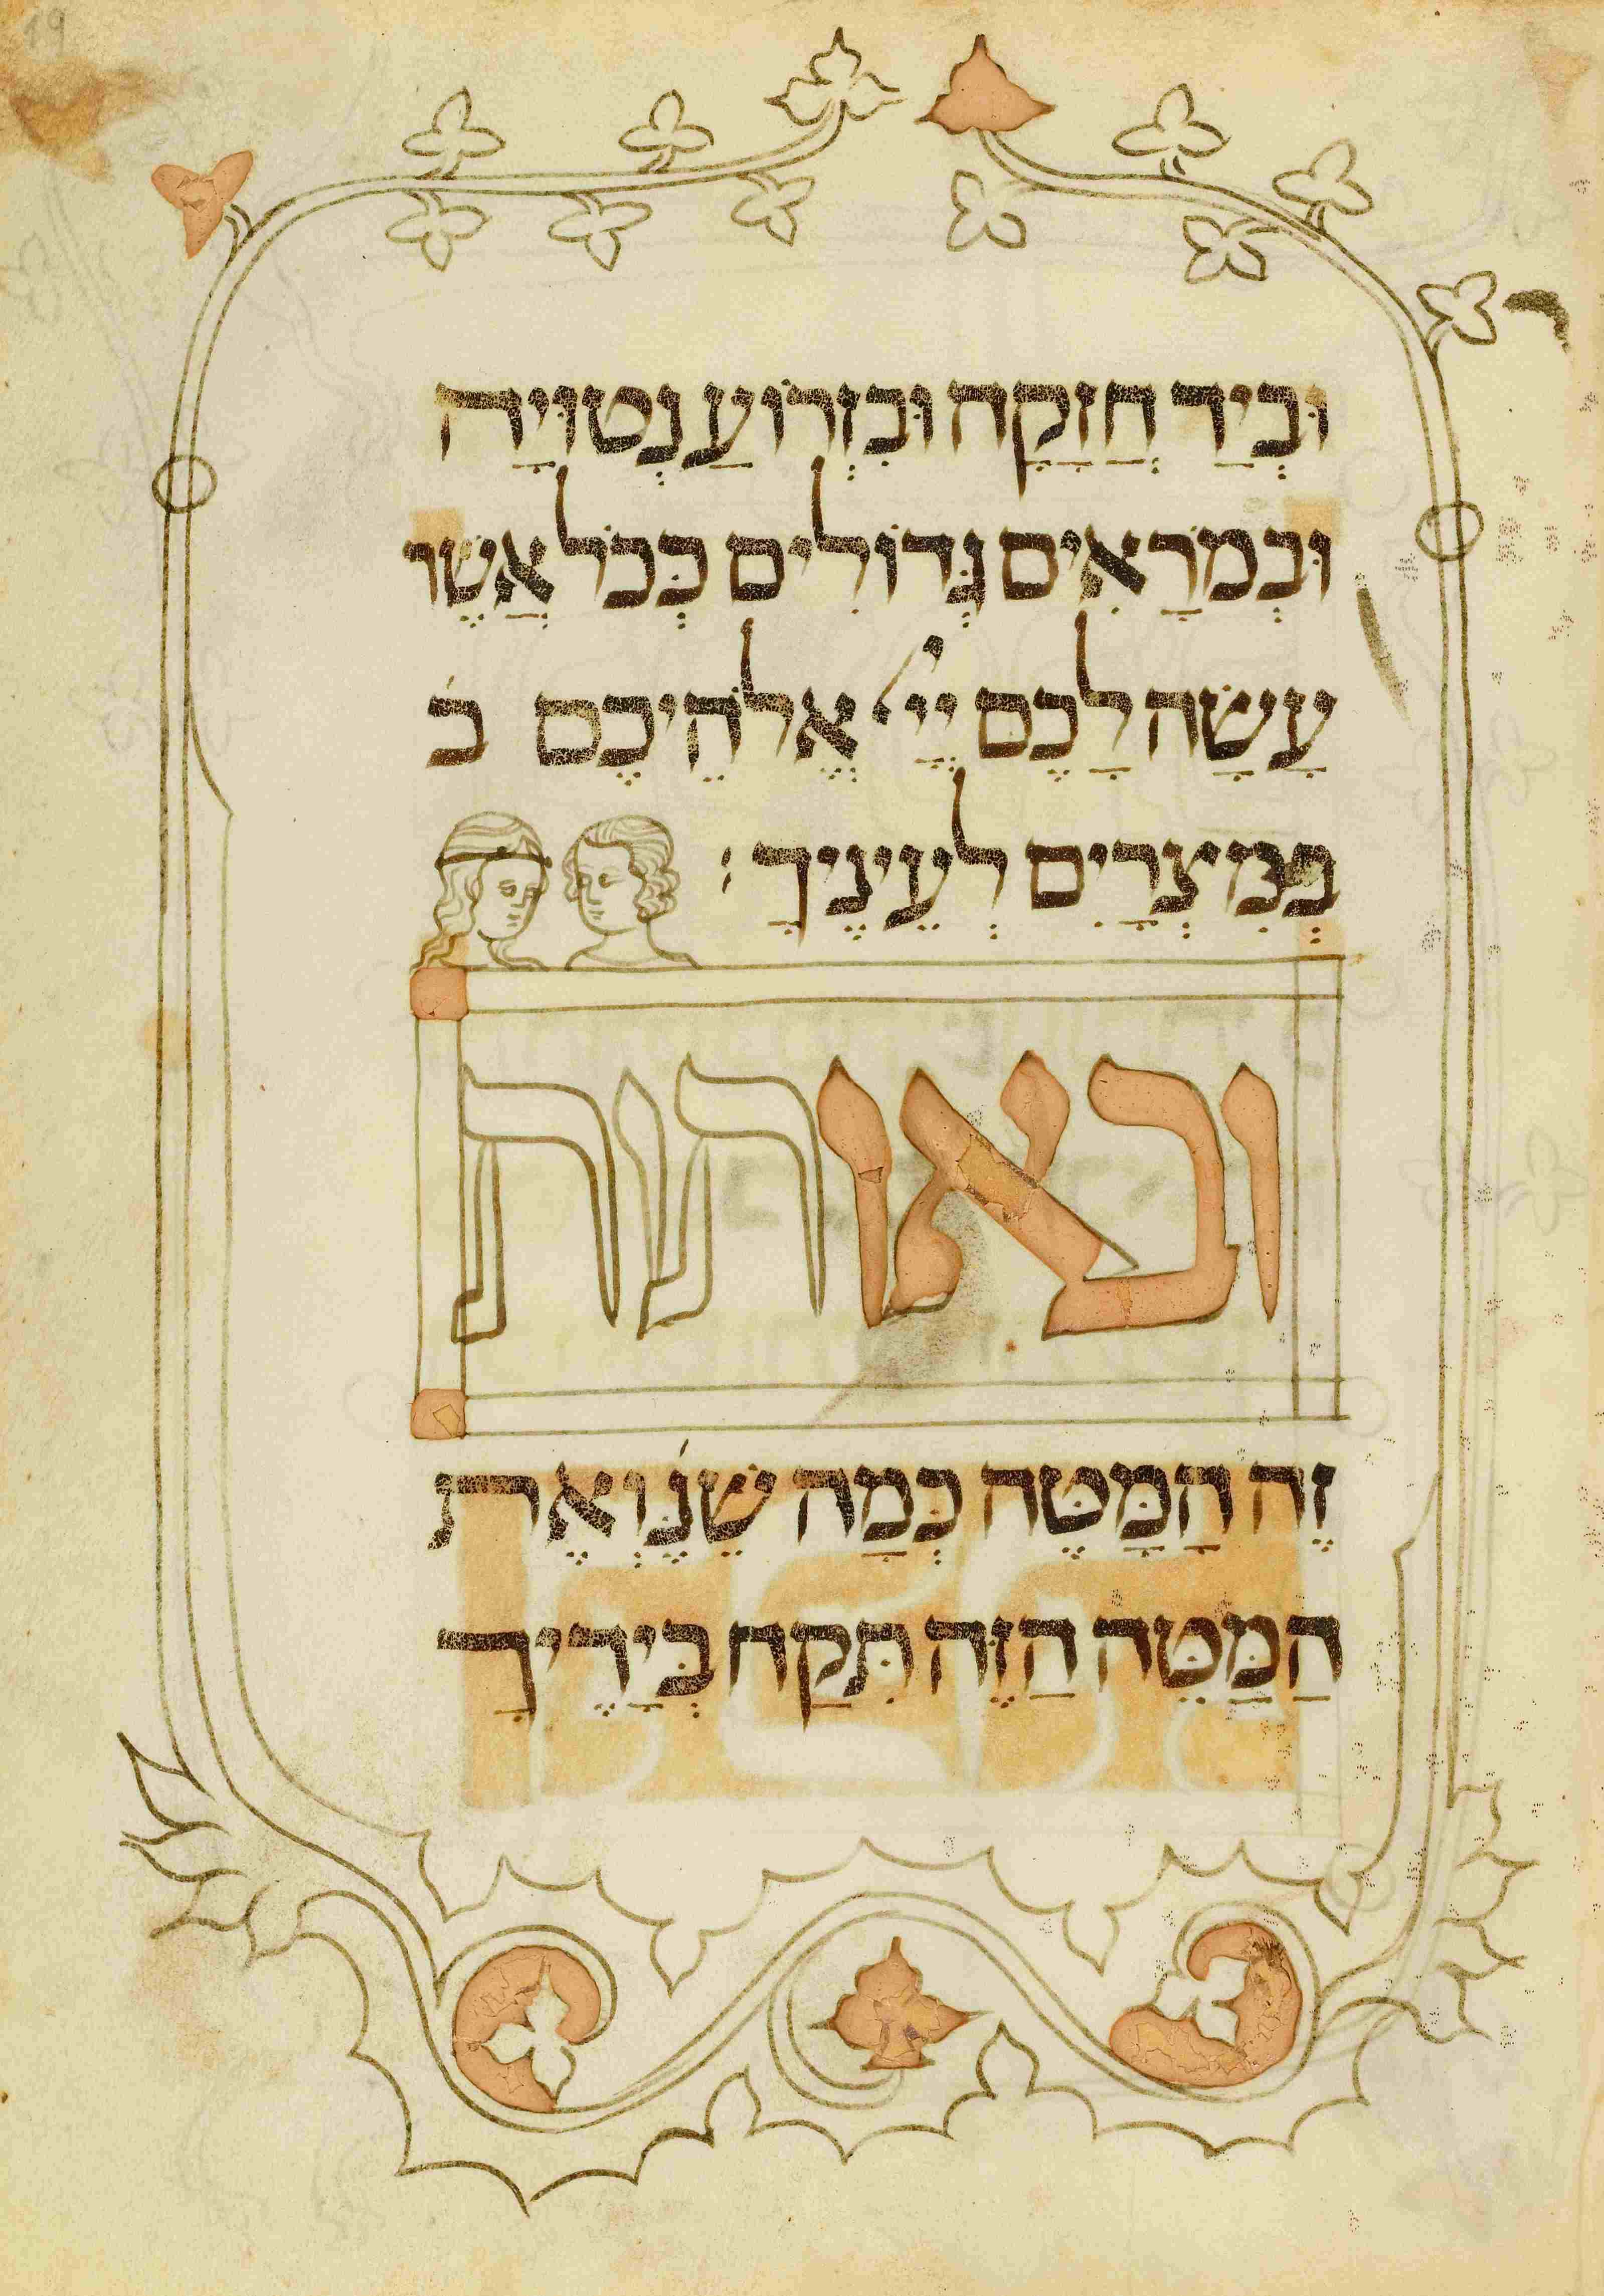 19
וּבְיָד חֲזָקָה וּבִזְרוֹעַ נְטוּיָה
וּבְמֹרָאִים גְּדוֹלִים כְּכֹל אֲשֶׁר
עָשָׂה לָכֶם יְיָ׳ אֱלֹהֵיכֶם בֹ
בְּמִצְרַיִם לְעֵינֶיךָ׃
ובאותות
זֶה הַמַּטֶּה כְּמָה שֶׁנֶּ׳ וְאֶת
הַמַּטֶּה הַזֶּה תִּקַּח בְּיָדֶיךָ